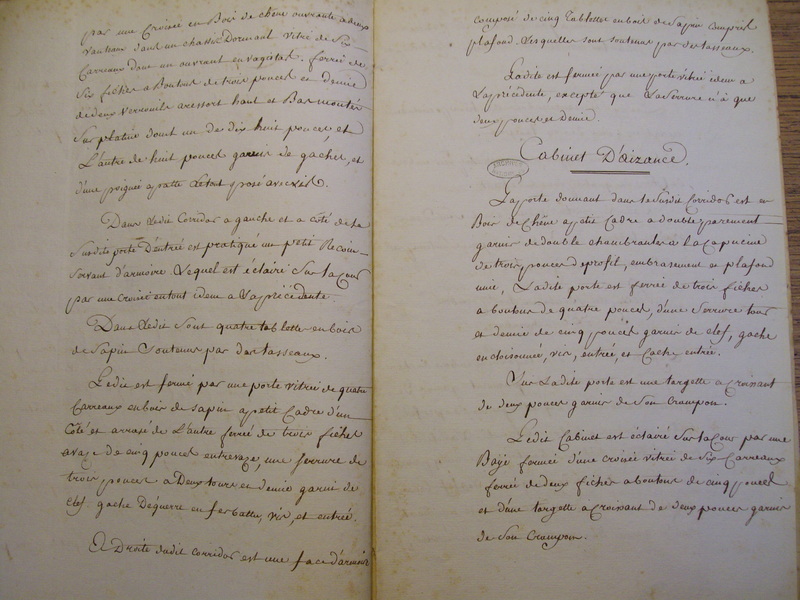 par une Croisée en Bois de chêne ouvrante à deux
vanteaux dans un chassis Dormant vitré de Six
Carreaux dont un ouvrant en vagistas. ferrée de
Six fiches a Boutons de trois pouces et demie
de deux Verrouils a ressort haut et Bas montés
Sur platine dont un de dix huit pouces et
L'autre de huit pouces garnis de gaches, et
d'une poignée a patte le tout posé avec vis.
Dans Ledit Corridor a gauche et a côté de la
Susdite porte D'entrée est pratiqué un petit Recoin
Servant d'armoire Lequel est éclairé Sur la Cour
par une croisée en tout idem a La précédente.
Dans Ledit Sont quatre tablettes en bois
de Sapin Soutenus par des tasseaux.
Ledit est fermé par une porte vitrée de quatre
Carreaux en bois de sapin a petit Cadre d'un
Côté et arrasé de L'autre ferré de trois fiches
a vaze de cinq pouces entre vaze, une serrure de
trois pouces a Deux tours et demie garnie de
Clef gache D'équerre en fer battu, vis, et entrée.
A Droite dudit corridor est une face d'armoire
composé de cinq Tablettes en bois de Sapin Compris le
plafond. Lesquelles sont soutenus par des tasseaux.
Ladite est fermée par une porte vitrée idem a
La précédente, excepté que La Serrure n'a que
deux pouces et Demie.
Cabinet D'aizance.
La porte donnant dans le Susdit Corridor est en
Bois de Chêne a petit Cadre a double parement
garnie de double chambranles a la Capucine
de trois pouces de profil, embrasement et plafond
unie, Ladite porte est ferrée de trois fiches
a boutons de quatre pouces, d'une Serrure tour
et demie de cinq pouces garnie de clef, gache
encloisonnée, vis, entrée, et Cache entrée.
Sur Ladite porte est une targette a croissant
de deux pouces garnie de Son Crampon.
Ledit Cabinet est éclairé Sur la Cour par une
Baye fermée d'une croisée vitrée de Six Carreaux
ferrée de deux fiches a boutons de cinq pouces
et d'une targette a Croissant de deux pouces garnie
de Son Crampon.